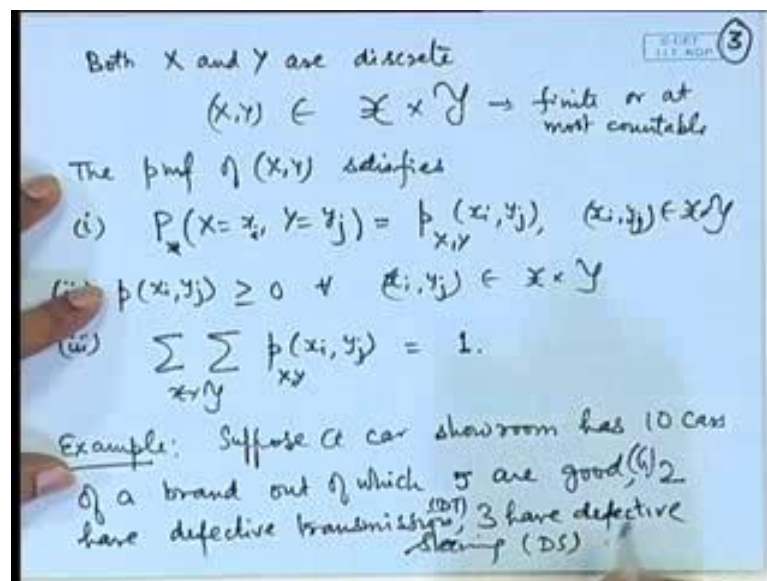 3
Both X and Y are discrete
(X,Y) ∈ 𝒳 × 𝒴 → finite or at
most countable
The pmf of (X,Y) satisfies
(i) P(X = x_i, Y = y_j) = p_{X,Y}(x_i, y_j), (x_i, y_j) ∈ 𝒳×𝒴
p(x_i, y_j) ≥ 0 ∀ (x_i, y_j) ∈ 𝒳 × 𝒴
(iii) ∑ ∑_{𝒳×𝒴} p_{XY}(x_i, y_j) = 1.
Example: Suppose a car showroom has 10 cars
of a brand out of which 5 are good, (G) 2
have defective transmission (DT), 3 have defective
steering (DS).